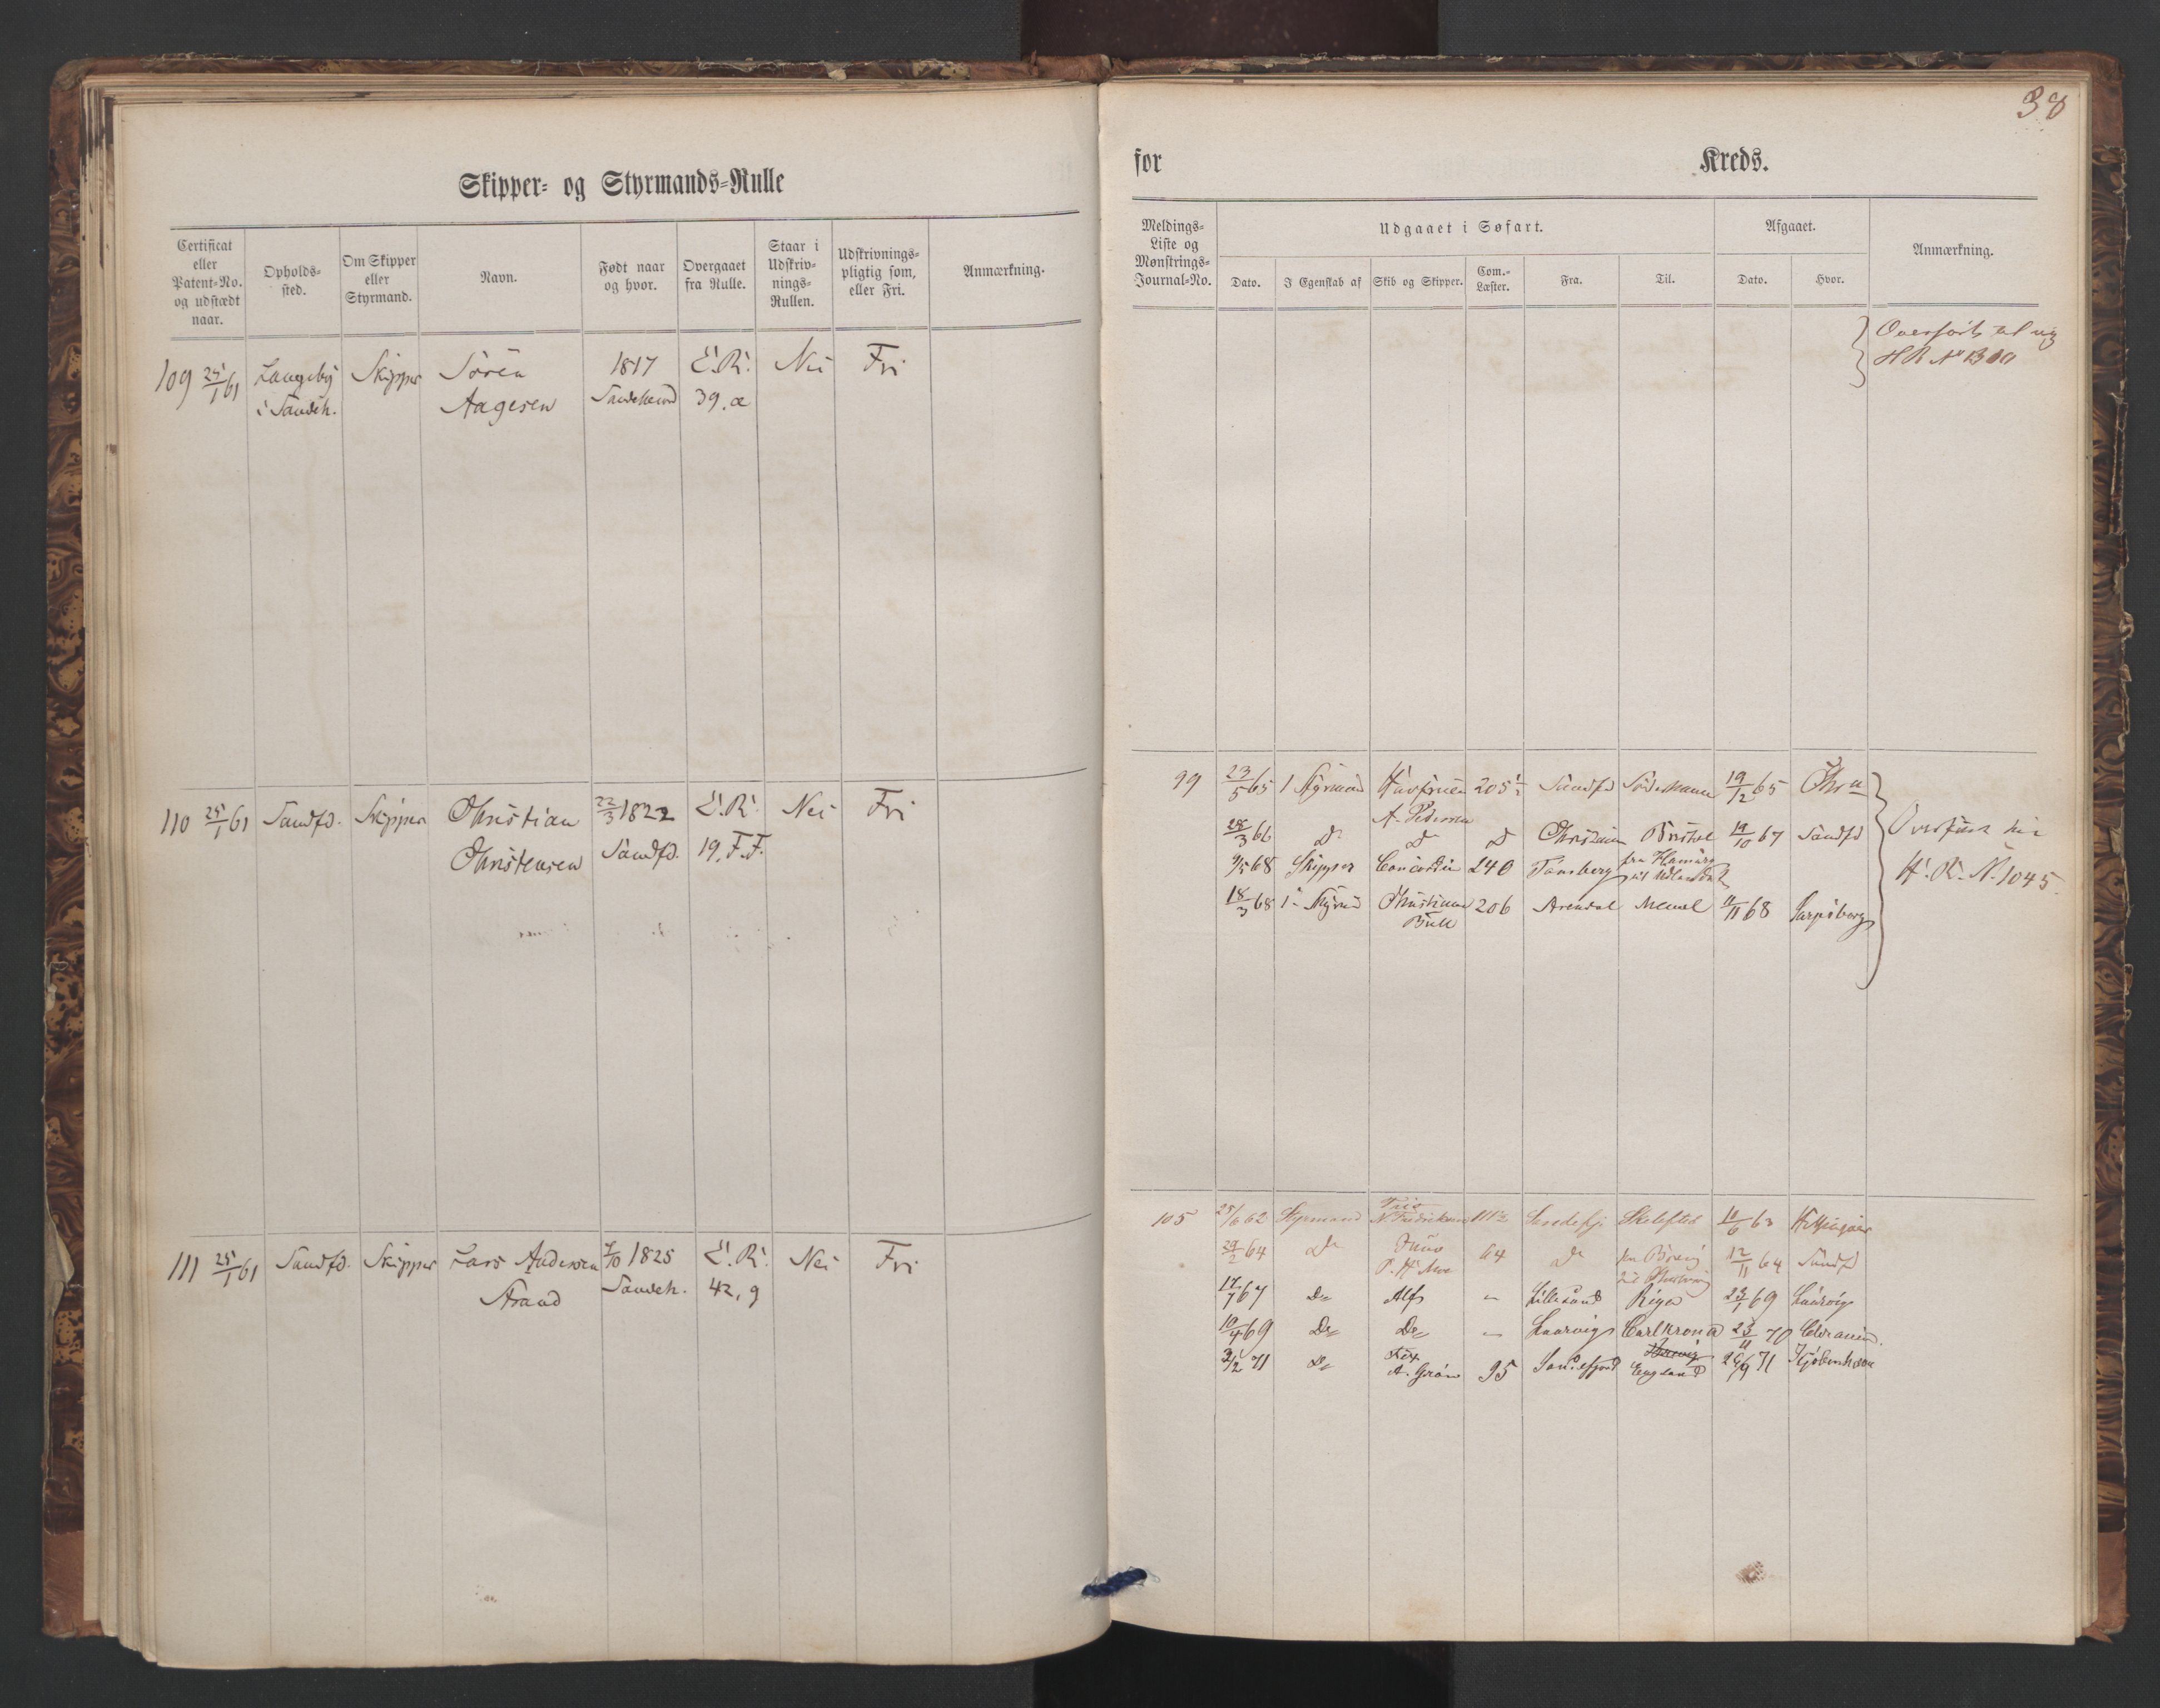 38
Skipper- og Styrmands-Rulle
for Kreds.
Certificat eller Patent-No. og udstædt naar.
Opholds-sted.
Om Skipper eller Styrmand.
Navn.
Født naar og hvor.
Overgaaet fra Rulle.
Staar i Udskriv-nings-Rullen.
Udskrivnings-pligtig som, eller Fri.
Anmærkning.
Meldings-Liste og Mønstrings-Journal-No.
Udgaaet i Søfart.
Dato.
I Egenskab af
Skib og Skipper.
Com.-Læster.
Fra.
Til.
Afgaaet.
Dato.
Hvor.
Anmærkning.
109 25/1 61 Langeby Skipper Sören 1817 E.R. Nei Fri
i Sandeh. Aagesen Sandeherred 39. a
Overført til ny
HR No
110 25/1 61 Sandfd. Skipper Christian 22/3 1822 E.R. Nei Fri
Christensen Sandfd. 19. F.F.
99 23/5 65 1 Styrmand Havfruen 205 1/2 Sandfd 19/12 65 Chra
A. Pedersen
28/3 66 do do do Christiania Bristol 19/10 67 Sandfd
9/5 68 Skipper Concordia 240 Tønsberg
18/3 68 1 Styrmd Christiane 206 Arendal Memel 11/11 68 Sarpsborg
Bull
Overført
H.R. N. 1045.
111 25/1 61 Sandfd. Skipper Lars Andersen 7/10 1825 E.R. Nei Fri
Strand Sandeh. 42, 9
105 25/6 62 Styrmand N. Fredriksen 111 1/2 Sandefj. 11/6 63
29/2 64 do Juno 64 do 12/11 64 Sandfd
P. H. Moe
17/7 67 Do Alf - Lillesand Riga 23/1 69 Laurvig
10/4 69 Do Do - Laurvig Carlkrona 23/11 70
3/2 71 Do 95 Sandefjord England 26/9 71 Kjöbenhavn
A. Grøn